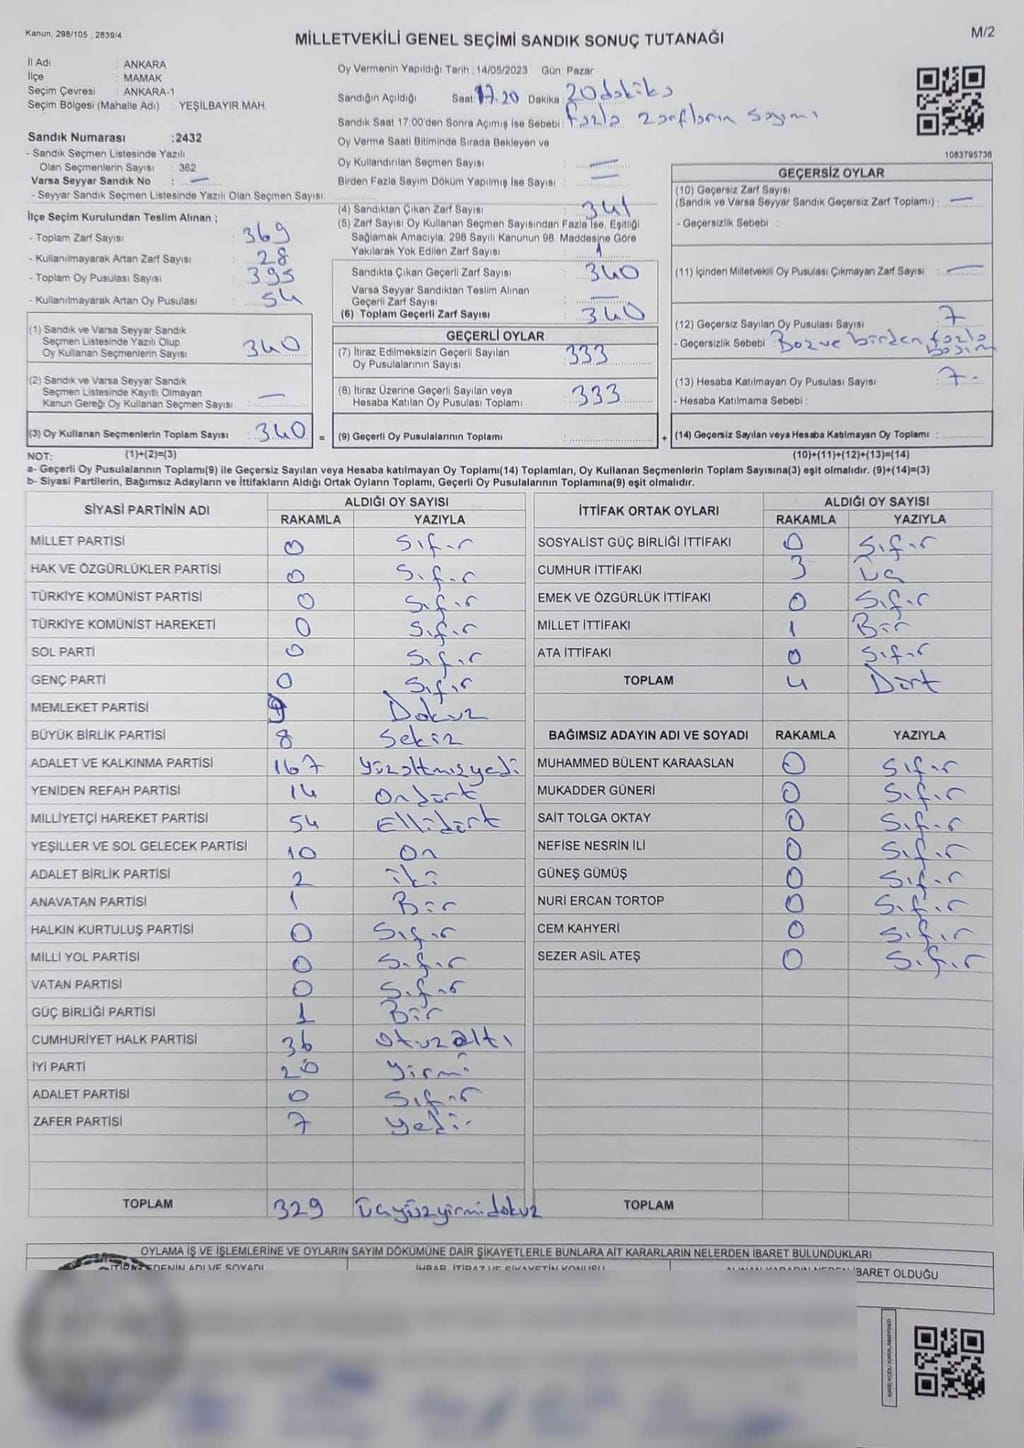 Kanun, 298/105 , 2839/4
MİLLETVEKİLİ GENEL SEÇİMİ SANDIK SONUÇ TUTANAĞI
M/2
İl Adı : ANKARA
İlçe : MAMAK
Seçim Çevresi : ANKARA-1
Seçim Bölgesi (Mahalle Adı) : YEŞİLBAYIR MAH.
Sandık Numarası :2432
- Sandık Seçmen Listesinde Yazılı
Olan Seçmenlerin Sayısı : 362
Varsa Seyyar Sandık No : —
- Seyyar Sandık Seçmen Listesinde Yazılı Olan Seçmen Sayısı:
İlçe Seçim Kurulundan Teslim Alınan ;
- Toplam Zarf Sayısı : 369
- Kullanılmayarak Artan Zarf Sayısı : 28
- Toplam Oy Pusulası Sayısı : 395
- Kullanılmayarak Artan Oy Pusulası : 54
(1) Sandık ve Varsa Seyyar Sandık
Seçmen Listesinde Yazılı Olup
Oy Kullanan Seçmenlerin Sayısı : 340
(2) Sandık ve Varsa Seyyar Sandık
Seçmen Listesinde Kayıtlı Olmayan
Kanun Gereği Oy Kullanan Seçmen Sayısı : —
(3) Oy Kullanan Seçmenlerin Toplam Sayısı : 340 =
Oy Vermenin Yapıldığı Tarih : 14/05/2023 Gün: Pazar
Sandığın Açıldığı Saat: 17.20 Dakika: 20 dakika
Sandık Saat 17:00'den Sonra Açımış İse Sebebi: Fazla zarfların sayımı
Oy Verme Saati Bitiminde Sırada Bekleyen ve
Oy Kullandırılan Seçmen Sayısı : —
Birden Fazla Sayım Döküm Yapılmış İse Sayısı : —
(4) Sandıktan Çıkan Zarf Sayısı : 341
(5) Zarf Sayısı Oy Kullanan Seçmen Sayısından Fazla İse, Eşitliği
Sağlamak Amacıyla; 298 Sayılı Kanunun 98. Maddesine Göre
Yakılarak Yok Edilen Zarf Sayısı : 1
Sandıkta Çıkan Geçerli Zarf Sayısı : 340
Varsa Seyyar Sandıktan Teslim Alınan
Geçerli Zarf Sayısı : —
(6) Toplam Geçerli Zarf Sayısı : 340
GEÇERLİ OYLAR
(7) İtiraz Edilmeksizin Geçerli Sayılan
Oy Pusulalarının Sayısı : 333
(8) İtiraz Üzerine Geçerli Sayılan veya
Hesaba Katılan Oy Pusulası Toplamı : 333
(9) Geçerli Oy Pusulalarının Toplamı : +
1083795736
GEÇERSİZ OYLAR
(10) Geçersiz Zarf Sayısı
(Sandık ve Varsa Seyyar Sandık Geçersiz Zarf Toplamı) : —
- Geçersizlik Sebebi :
(11) İçinden Milletvekili Oy Pusulası Çıkmayan Zarf Sayısı : —
(12) Geçersiz Sayılan Oy Pusulası Sayısı : 7
- Geçersizlik Sebebi : Boş ve birden fazla
basım
(13) Hesaba Katılmayan Oy Pusulası Sayısı : 7.
- Hesaba Katılmama Sebebi :
(14) Geçersiz Sayılan veya Hesaba Katılmayan Oy Toplamı :
NOT: (1)+(2)=(3) (10)+(11)+(12)+(13)=(14)
a- Geçerli Oy Pusulalarının Toplamı(9) ile Geçersiz Sayılan veya Hesaba katılmayan Oy Toplamı(14) Toplamları, Oy Kullanan Seçmenlerin Toplam Sayısına(3) eşit olmalıdır. (9)+(14)=(3)
b- Siyasi Partilerin, Bağımsız Adayların ve İttifakların Aldığı Ortak Oyların Toplamı, Geçerli Oy Pusulalarının Toplamına(9) eşit olmalıdır.
SİYASİ PARTİNİN ADI ALDIĞI OY SAYISI
RAKAMLA YAZIYLA
MİLLET PARTİSİ 0 Sıfır
HAK VE ÖZGÜRLÜKLER PARTİSİ 0 Sıfır
TÜRKİYE KOMÜNİST PARTİSİ 0 Sıfır
TÜRKİYE KOMÜNİST HAREKETİ 0 Sıfır
SOL PARTİ 0 Sıfır
GENÇ PARTİ 0 Sıfır
MEMLEKET PARTİSİ 9 Dokuz
BÜYÜK BİRLİK PARTİSİ 8 Sekiz
ADALET VE KALKINMA PARTİSİ 167 Yüzaltmışyedi
YENİDEN REFAH PARTİSİ 14 Ondört
MİLLİYETÇİ HAREKET PARTİSİ 54 Ellidört
YEŞİLLER VE SOL GELECEK PARTİSİ 10 On
ADALET BİRLİK PARTİSİ 2 iki
ANAVATAN PARTİSİ 1 Bir
HALKIN KURTULUŞ PARTİSİ 0 Sıfır
MİLLİ YOL PARTİSİ 0 Sıfır
VATAN PARTİSİ 0 Sıfır
GÜÇ BİRLİĞİ PARTİSİ 1 Bir
CUMHURİYET HALK PARTİSİ 36 Otuzaltı
İYİ PARTİ 20 Yirmi
ADALET PARTİSİ 0 Sıfır
ZAFER PARTİSİ 7 Yedi
TOPLAM 329 üçyüzyirmidokuz
İTTİFAK ORTAK OYLARI ALDIĞI OY SAYISI
RAKAMLA YAZIYLA
SOSYALİST GÜÇ BİRLİĞİ İTTİFAKI 0 Sıfır
CUMHUR İTTİFAKI 3 Üç
EMEK VE ÖZGÜRLÜK İTTİFAKI 0 Sıfır
MİLLET İTTİFAKI 1 Bir
ATA İTTİFAKI 0 Sıfır
TOPLAM 4 Dört
BAĞIMSIZ ADAYIN ADI VE SOYADI RAKAMLA YAZIYLA
MUHAMMED BÜLENT KARAASLAN 0 Sıfır
MUKADDER GÜNERİ 0 Sıfır
SAİT TOLGA OKTAY 0 Sıfır
NEFİSE NESRİN İLİ 0 Sıfır
GÜNEŞ GÜMÜŞ 0 Sıfır
NURİ ERCAN TORTOP 0 Sıfır
CEM KAHYERİ 0 Sıfır
SEZER ASİL ATEŞ 0 Sıfır
TOPLAM
OYLAMA İŞ VE İŞLEMLERİNE VE OYLARIN SAYIM DÖKÜMÜNE DAİR ŞİKAYETLERLE BUNLARA AİT KARARLARIN NELERDEN İBARET BULUNDUKLARI
İHBAR, İTİRAZ VE ŞİKAYETİN KONUSU
İBARET OLDUĞU